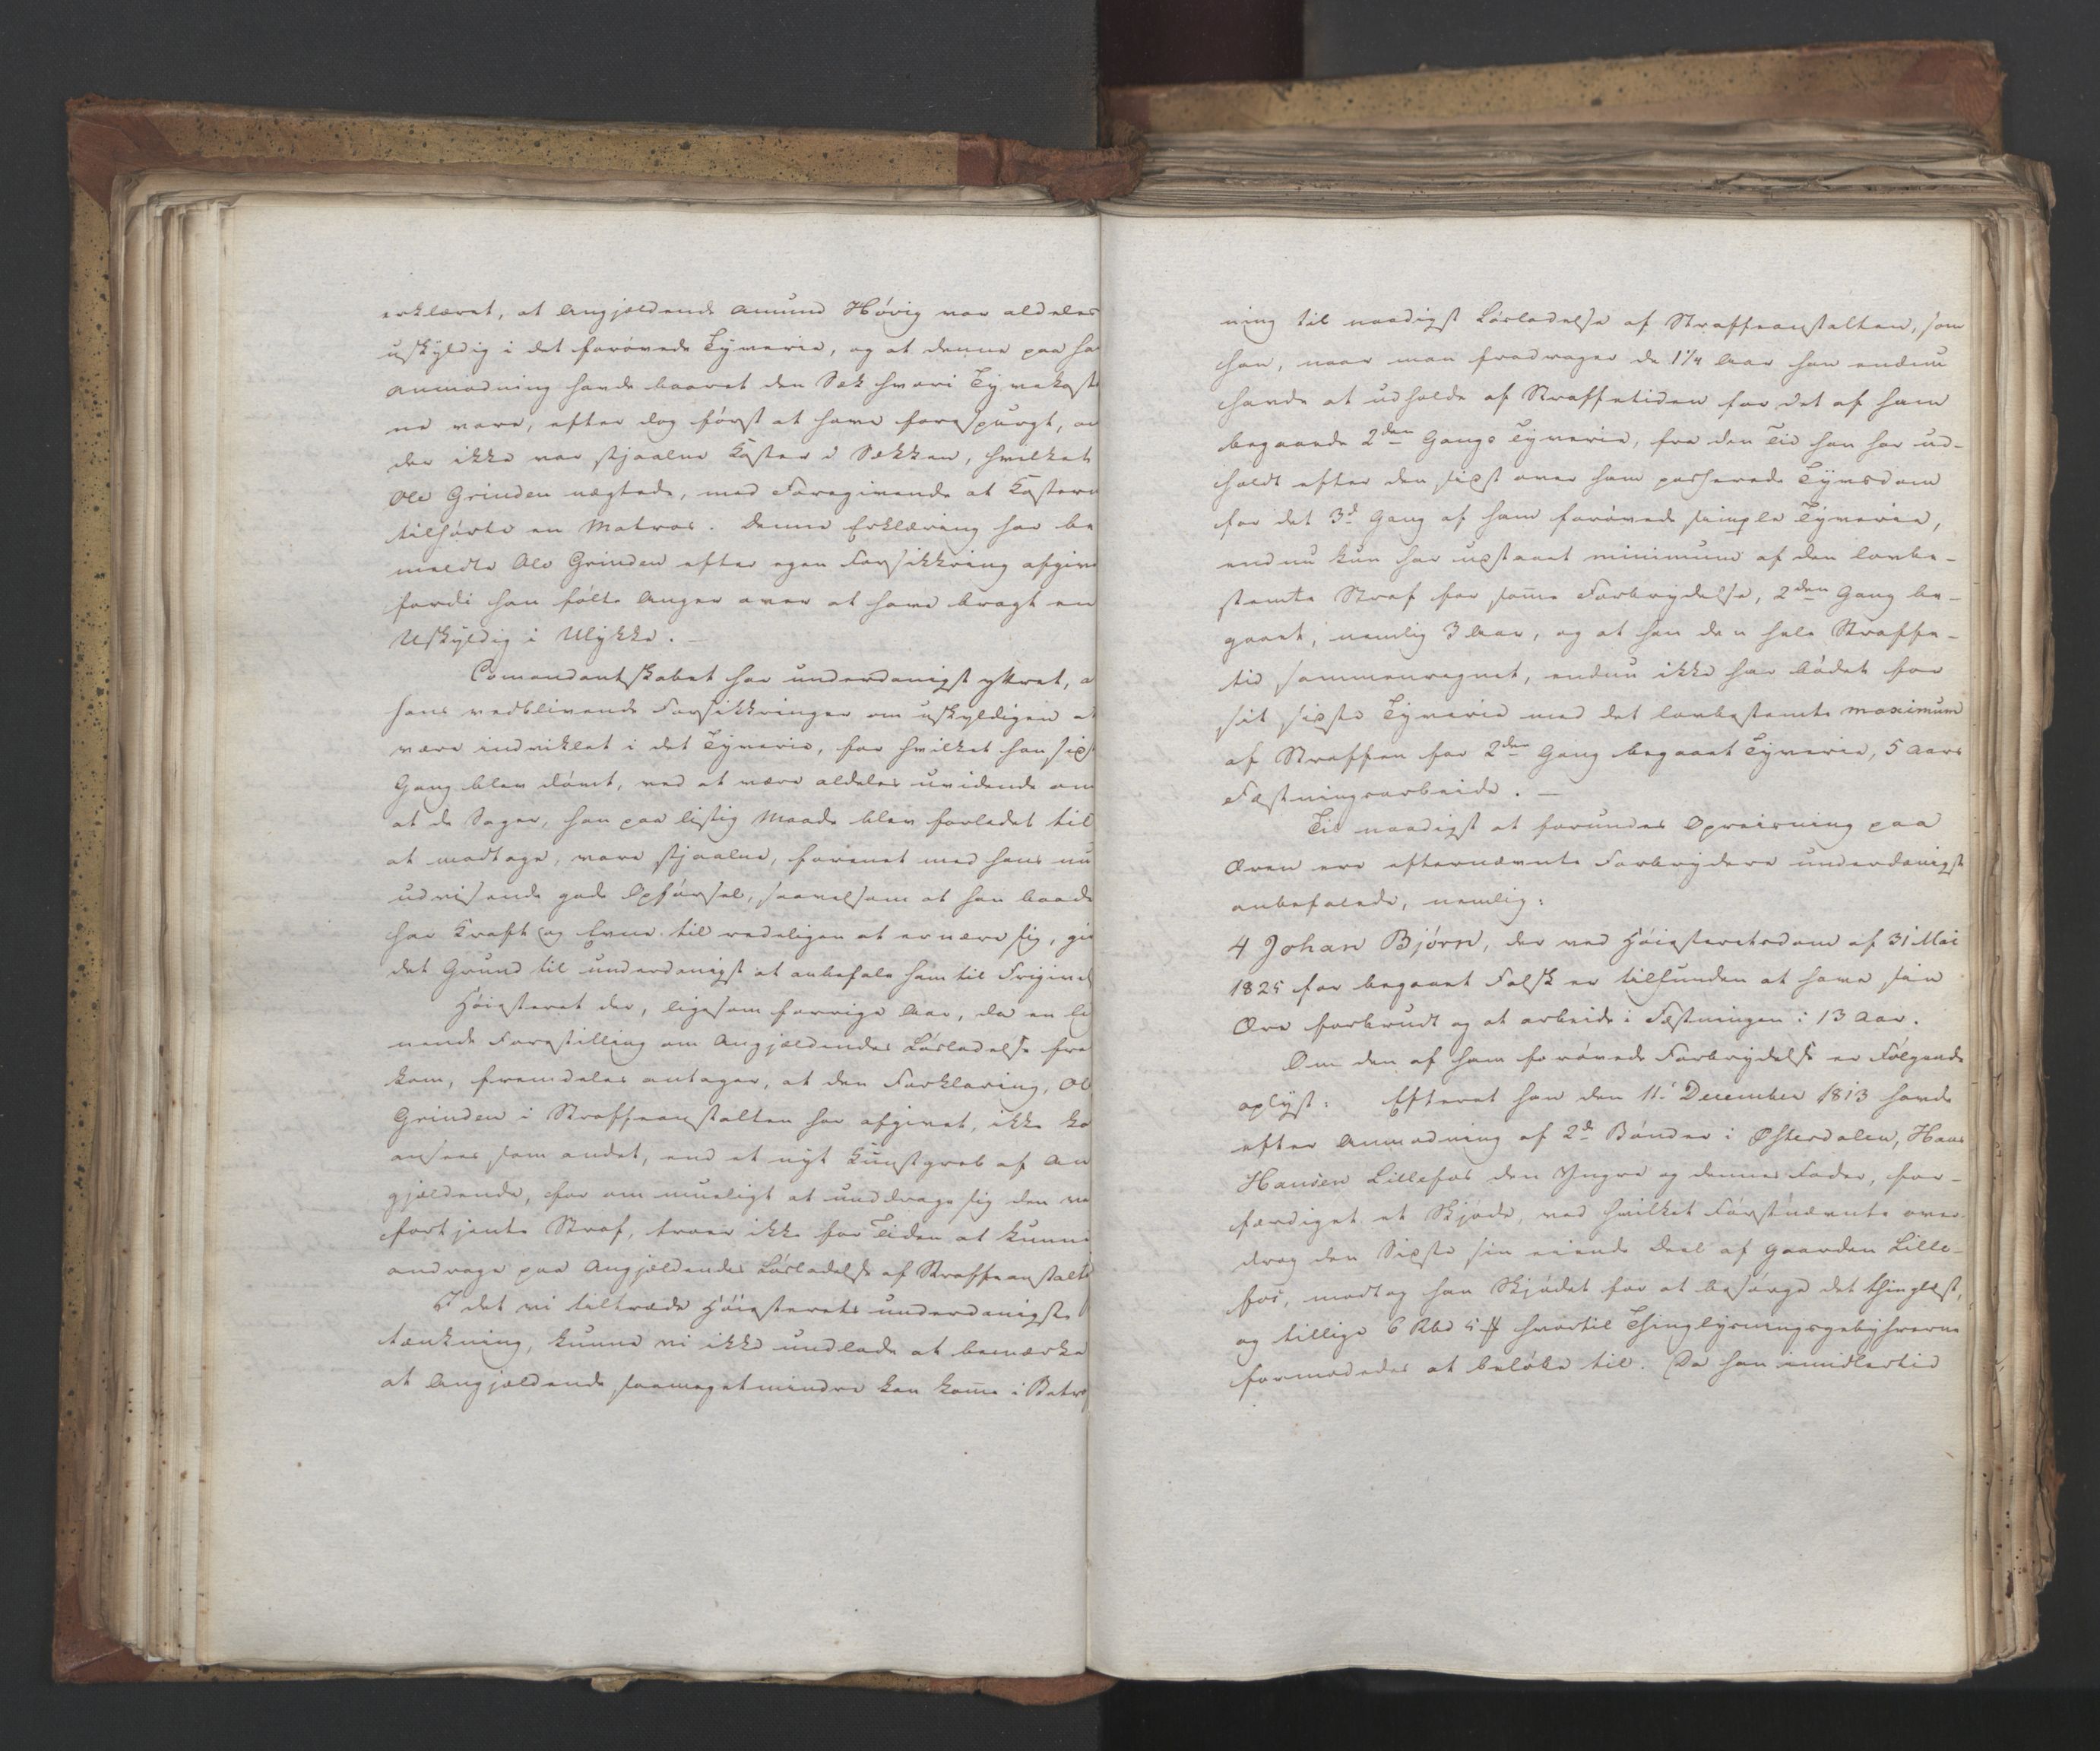 erklæret, at Angjeldende Amund Hövig var aldeles
uskyldig i det forövede Tyverie, og at denne paa ha
Anmodning havde baaret den Sæk hvori Tyvekoste
ne vare, efter dog först at have forespurgt, om
der ikke var stjaalne Koster i Sækken, hvilket
Ole Grinden nægtede, med Foregivende at Kostern
tilhörte en Matros. Denne Erklæring har be
meldte Ole Grinden efter egen Forsikkring afgive
fordi han fölte Anger over at have bragt en
Uskyldig i Ulykke. —
Comandantskabet har underdanigst yttret, a
hans vedblivende Forsikkringer om uskyldigen at
være indviklet i det Tyverie, for hvilket han sids
Gang blev dömt, ved at være aldeles uvidende om
at de Sager, han paa listig Maade blev forledet til
at modtage, vare stjaalne, forenet med hans nu
udvisende gode Opförsel, saavelsom at han baade
har Kraft og Evne til redeligen at ernære sig, giv
det Grund til underdanigst at anbefale ham til Frigivel
Höiesteret der, ligesom forrige Aar, da en lig
nende Forestilling om Angjældendes Lösladelse frem
kom, fremdeles antager, at den Forklaring, Ole
Grinden i Straffeanstalten har afgivet, ikke ka
ansees som andet, end et nyt Kunstgreb af An
gjældende, for om mueligt at unddrage sig den vel
fortjente Straf, troer ikke for Tiden at kunne
andrage paa Angjældendes Lösladelse af Straffeanstalte
I det vi tiltræde Höiesterets underdanigste
tænkning, kunne vi ikke undlade at bemærke
at Angjældende saameget mindre kan kom̃e i Betra
ning til naadigst Lösladelse af Straffeanstalten, som
han, naar man fradrager de 1¼ Aar han endnu
havde at udholde af Straffetiden for det af ham
begaaede 2den Gangs Tyverie, fra den Tid han har ud-
holdt efter den sidst over ham passerede Tyvsdom
for det 3d Gang af ham forövede simple Tyverie,
endnu kun har udstaaet minimum af den lovbe-
stemte Straf for sam̃e Forbrydelse, 2den Gang be-
gaaet, nemlig 3 Aar, og at han den hele Straffe-
tid sammenregnet, endnu ikke har bödet for
sit sidste Tyverie med det lovbestemte maximum
af Straffen for 2den Gang begaaet Tyverie, 5 Aars
Fæstningsarbeide. —
Til naadigst at forundes Opreisning paa
Æren ere efternævnte Forbrydere underdanigst
anbefalede, nemlig:
4 Johan Björn, der ved Höiesteretsdom af 31 Mai
1825 for begaaet Falsk er tilfunden at have sin
Ære forbrudt og at arbeide i Fæstningen i 13 Aar.
Om den af ham forövede Forbrydelse er Fölgende
oplyst: Efterat han den 11. December 1813 havde
efter Anmodning af 2de Bönder i Østerdalen, Hans
Hansen Lillefos den Yngre og dennes Fader, for-
færdiget et Skjöde, ved hvilket Förstnævnte over
drog den Sidste sin eiende Deel af Gaarden Lille-
fos, modtog han Skjödet for at besörge det thinglæst,
og tillige 6 Rbd 5 ₰ hvortil Thinglysningsgebyhrerne
formodedes at belöbe til. Da han imidlertid